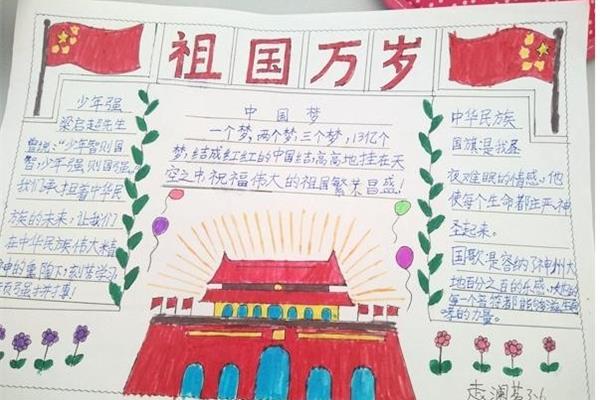 祖国万岁
少年强
梁启超先生
曾说:“少年智则国
智,少年强则国强。”
我们承担着中华民
族的未来,让我们
在中华民族伟大精
神的重陶下,刻苦学习
中国梦
一个梦,两个梦,三个梦,13亿个
梦,结成红红的中国结,高高地挂在天
空之中,祝福伟大的祖国繁荣昌盛!
中华民族
国旗是我昼
夜难眠的情感,他
使每个生命都庄严神
圣起来。
国歌是容纳了神州大
地百分之百的乐感,
每一个音符都能
的力量。
3.6